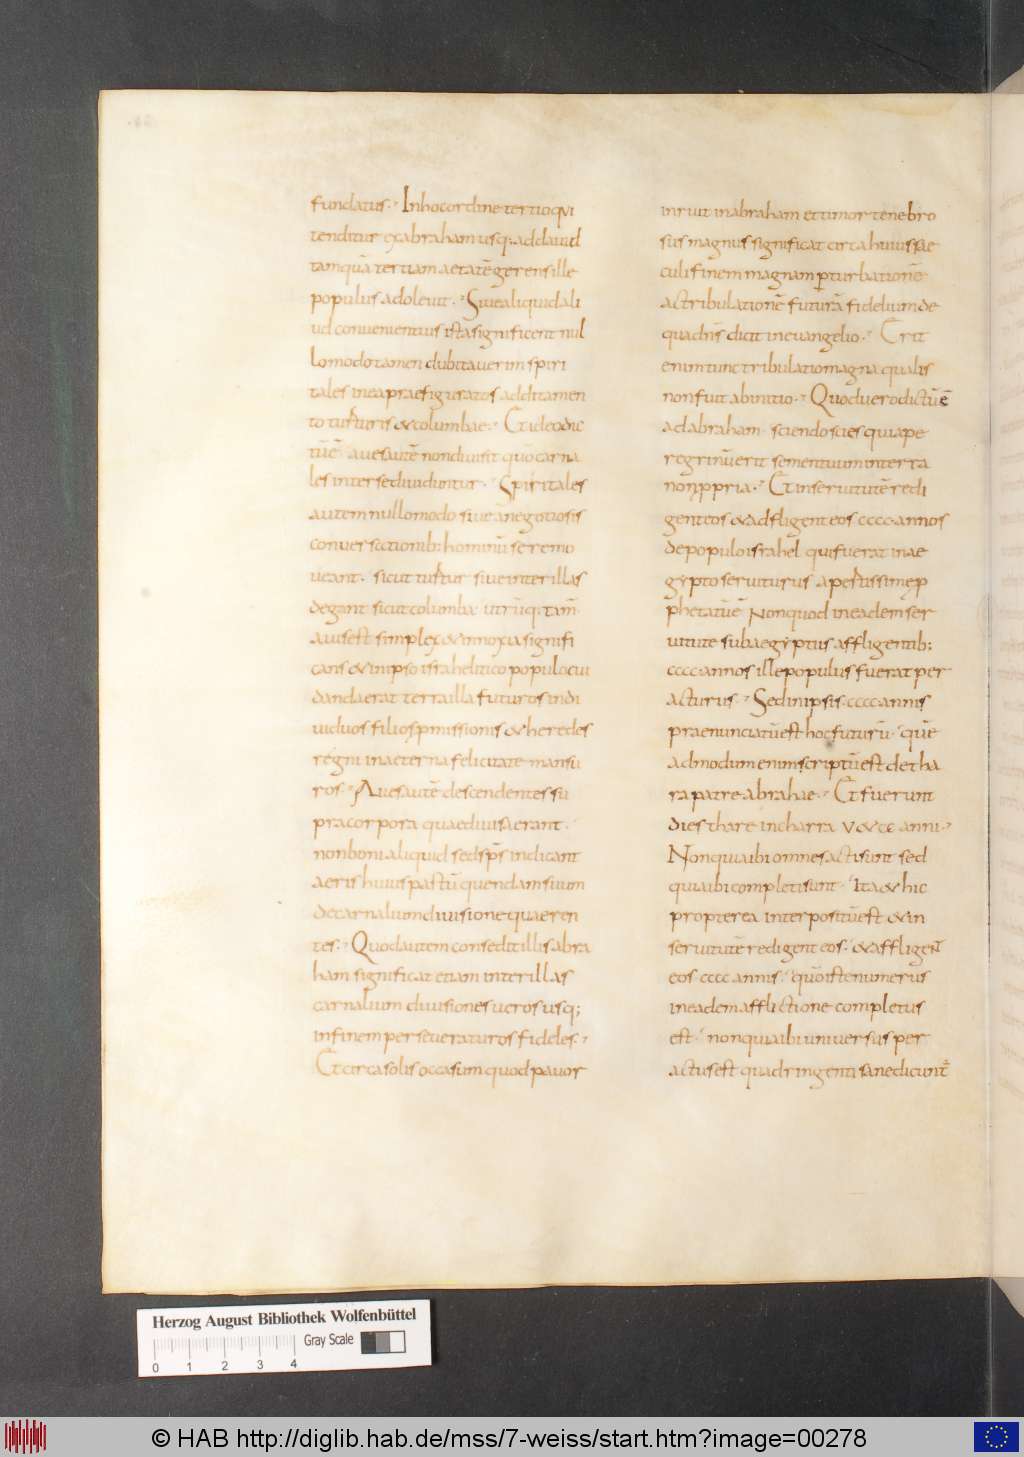 fundatus. Inhocordine tertio qui
tenditur exabraham usq; addauid
tamquā tertiam aetatē gerens ille
populus adoleuit. Siue aliquid ali
ud conuenientius ista significent nul
lomodo tamen dubitauerim spiri
tales in ea praefiguratos additamen
to turturis & columbae. Et ideo dic
tū ē aues autē non diuisit quō carna
les inter se diuiduntur. Spiritales
autem nullo modo siue a negotiosis
conuersationib; hominū se remo
ueant. sicut turtur siue inter illas
degant sicut columba utrūq; tam̄
auis est simplex & innoxia signifi
cans & in ipso israhelitico populo cui
danda erat terra illa futuros indi
uiduos filios pmissionis & heredes
regni in aeterna felicitate mansu
ros. Aues autē descendentes su
pra corpora quae diuisa erant.
non boni aliquid sed sps̄ indicant
aeris huius pastū quendam suum
de carnalium diuisione quaeren
tes. Quod autem consedit illis abra
ham significat etiam inter illas
carnalium diuisiones ueros usq;
in finem perseueraturos fideles.
Et circa solis occasum quod pauor
inruit in abraham et timor tenebro
sus magnus significat circa huius sae
culi finem magnam perturbationē
ac tribulationē futurā fidelium de
qua dn̄s dicit in euangelio. Erit
enim tunc tribulatio magna qualis
non fuit ab initio. Quod uero dictū ē
ad abraham sciendo scies quia pe
regrinū erit semen tuum in terra
non ppria. Et in seruitutē redi
gent eos & adfligent eos cccc annos
de populo israhel qui fuerat in ae
gypto seruiturus apertissime p
phetatū ē Non quod in eadem ser
uitute sub aegyptiis affligentib;
cccc annos ille populus fuerat per
acturus. Sed in ipsis cccc annis
praenunciatū est hoc futurū. quē
admodum enim scriptū est de tha
ra patre abrahae. Et fuerunt
dies thare in charra V & cc anni.
Non quia ibi omnes acti sunt sed
quia ibi completi sunt. Ita & hic
propterea interpositū est & in
seruitutē redigent eos. & affligent
eos cccc annis. quō iste numerus
in eadem afflictione completus
est. non quia ibi uniuersus per
actus est quadringenti sane dicunt̄
Herzog August Bibliothek Wolfenbüttel
Gray Scale
0 1 2 3 4
© HAB http://diglib.hab.de/mss/7-weiss/start.htm?image=00278